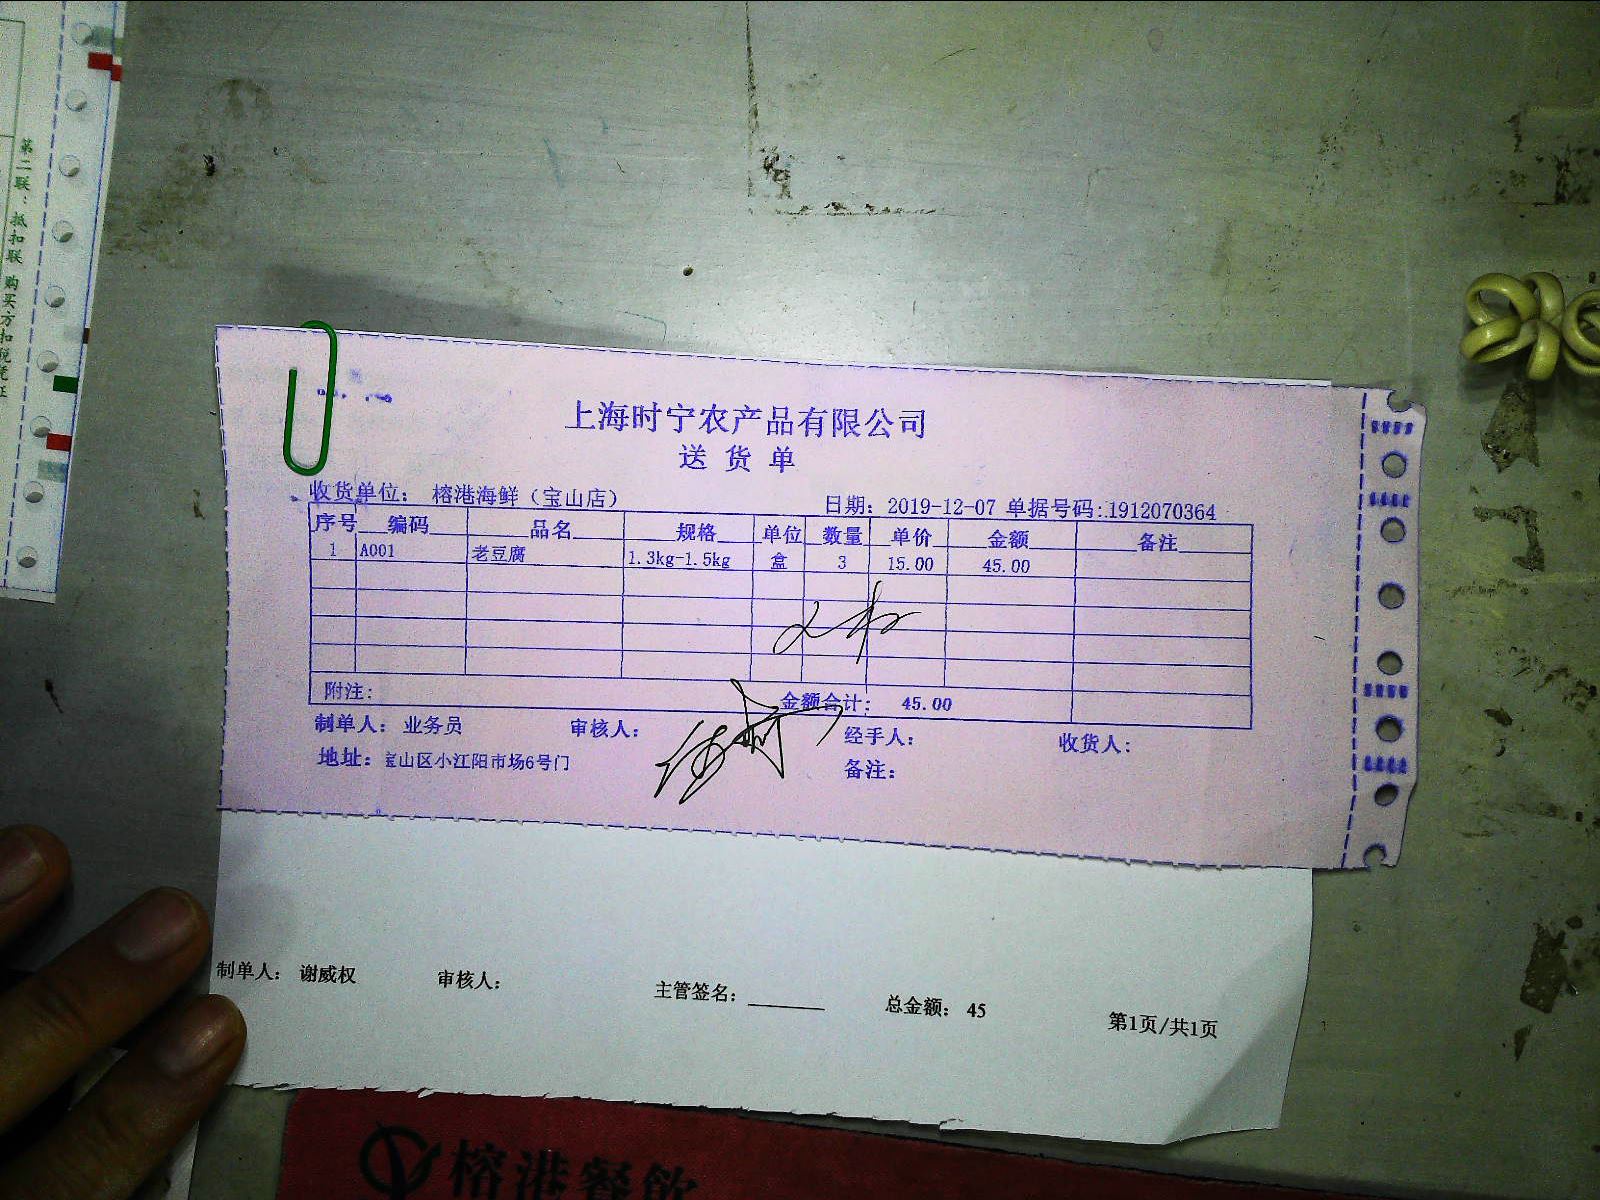 第二联：抵扣联 购买方扣税凭证
上海时宁农产品有限公司
送货单
收货单位： 榕港海鲜（宝山店） 日期：2019-12-07 单据号码：1912070364
序号 编码 品名 规格 单位 数量 单价 金额 备注
1 A001 老豆腐 1.3kg-1.5kg 盒 3 15.00 45.00
附注： 金额合计： 45.00
制单人：业务员 审核人： 经手人： 收货人：
地址：宝山区小江阳市场6号门 备注：
制单人： 谢威权 审核人： 主管签名： 总金额： 45 第1页/共1页
榕港餐飲